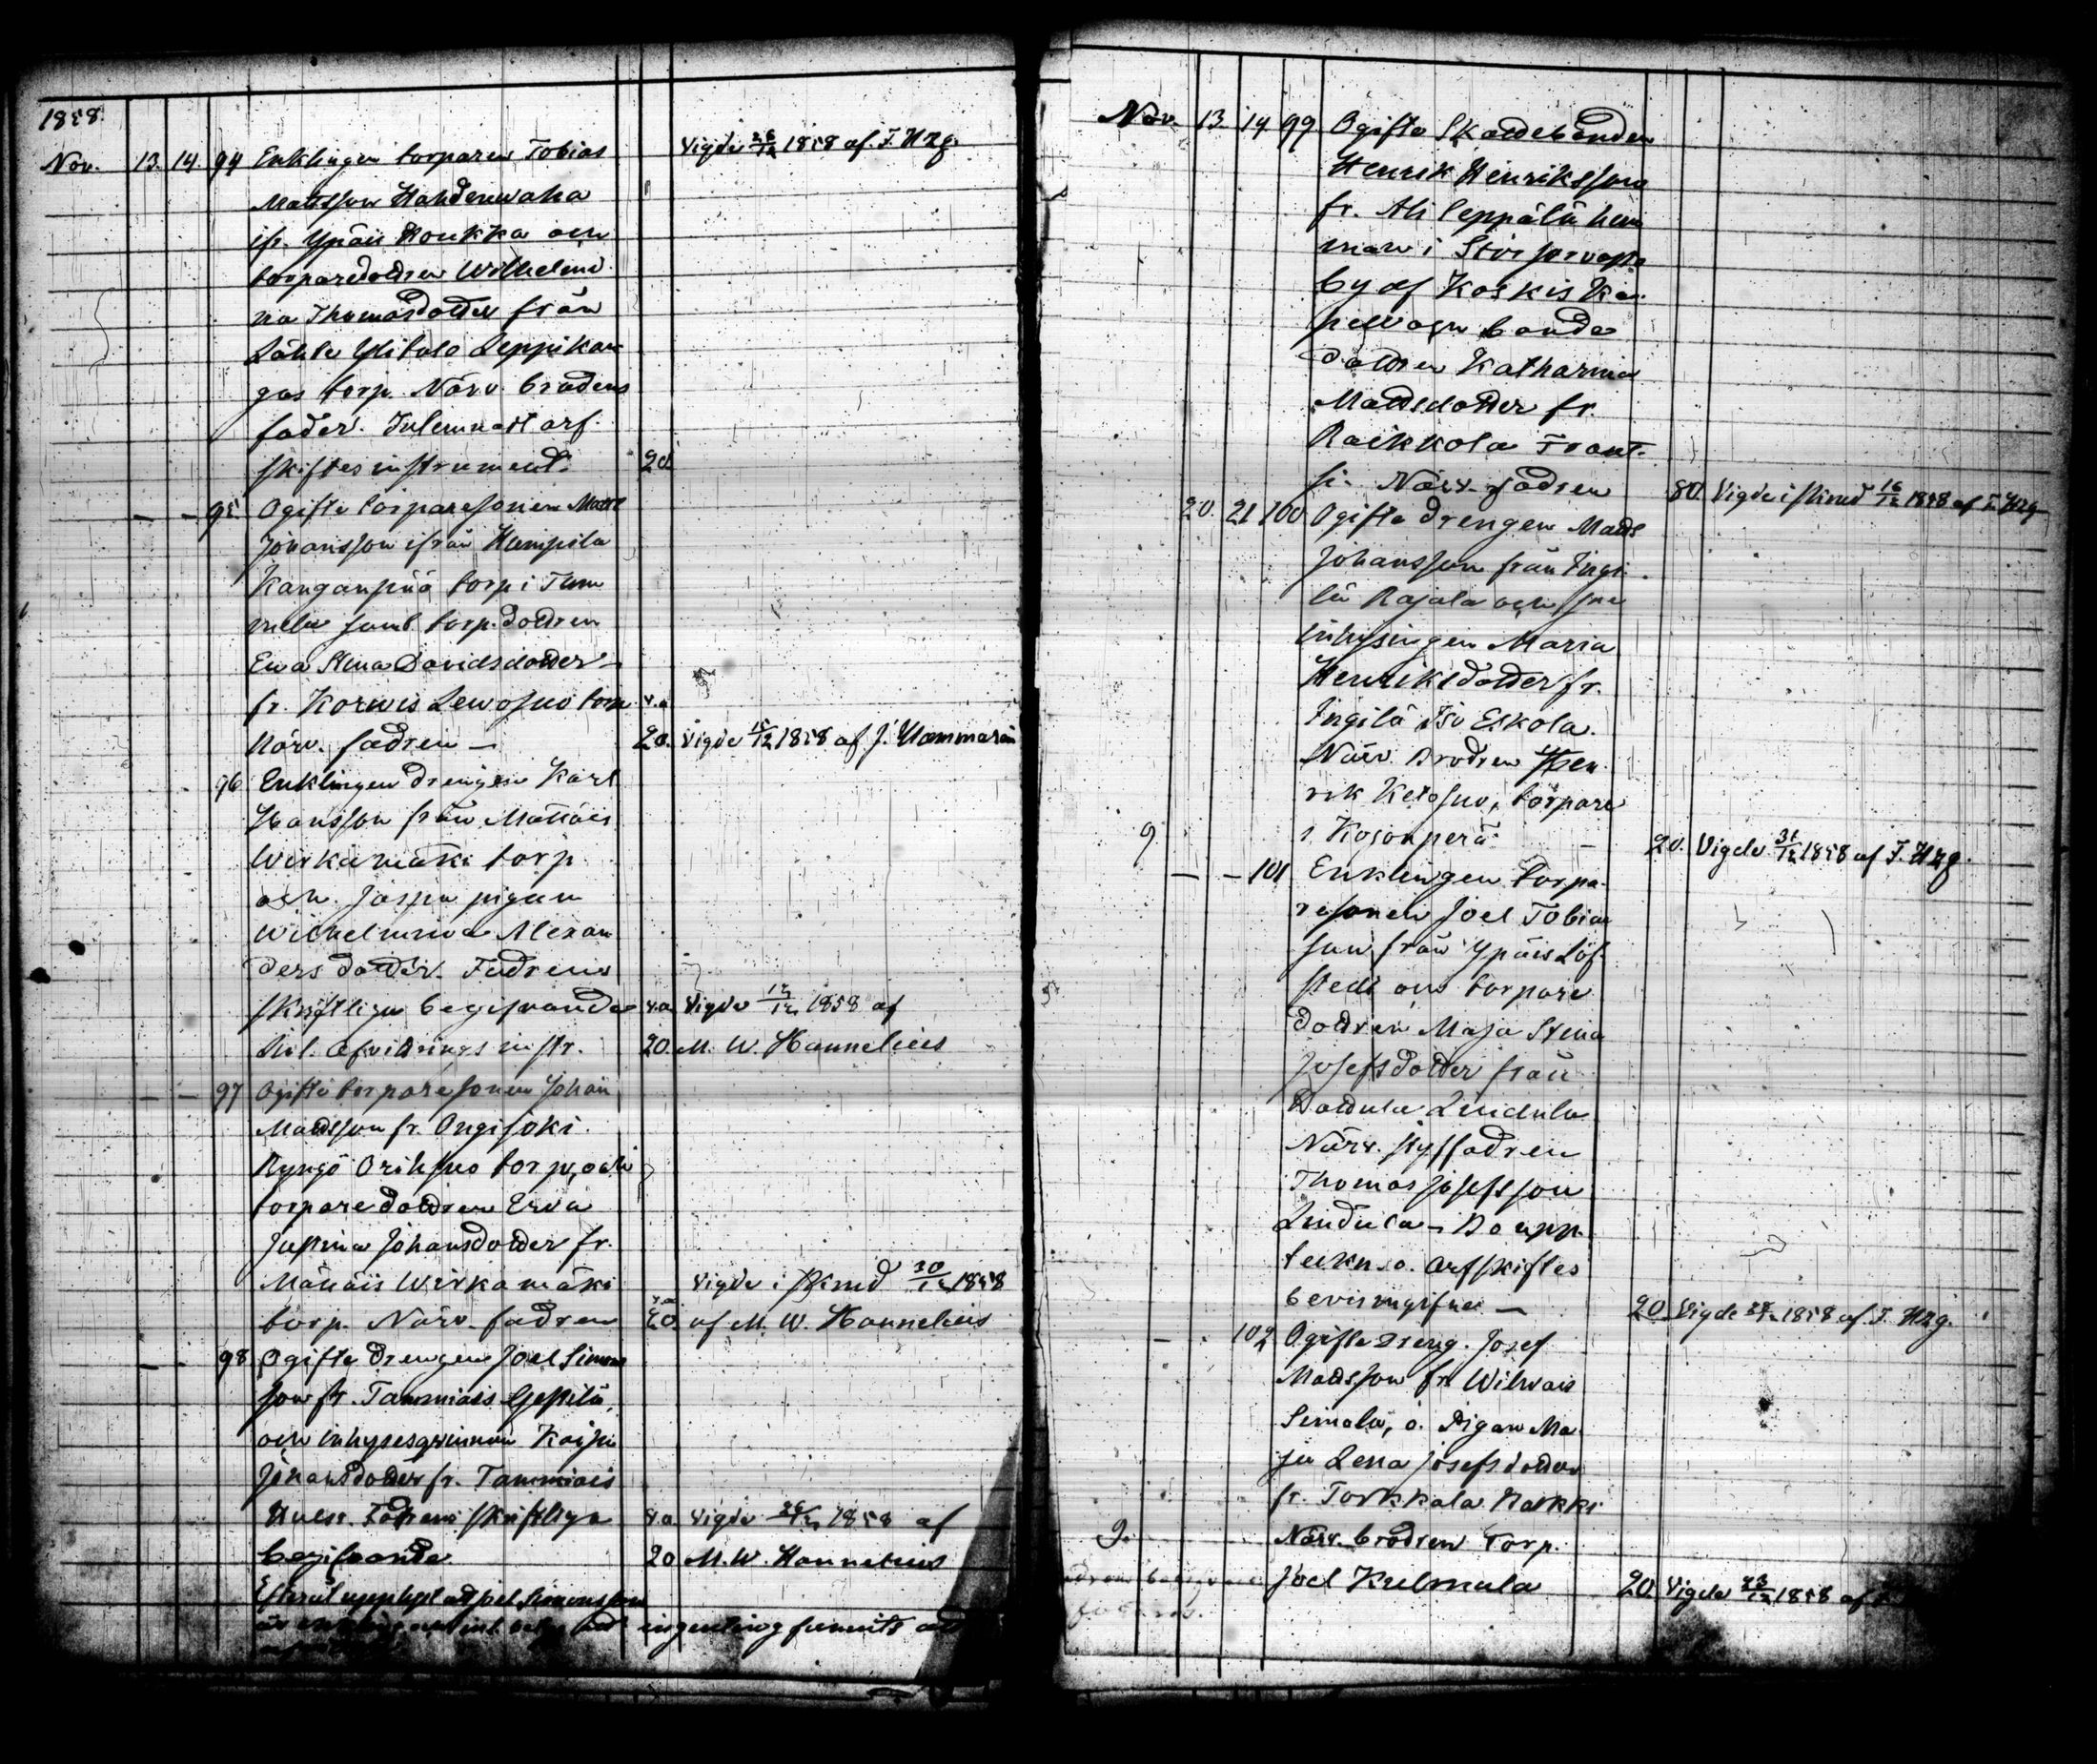 1858.
Nov. 13. 14. 94 Enklingen torparen Tobias
Vigde 26/12 1858 af F. Hzg.
Mattsson Hahdenwaha
ifr. Ypäis Koukka och
torparedottren Wilhelmi
na Thomasdotter från
Lähte Ylitalo Leppikan
gas torp. Närv. brudens
fader. Inlemnadt arf-
skiftesinstrument. 20
— — 95. Ogifte torparesonen Matts
Johansson ifrån Humpila
Kanganpää torp i Tam
mela samt torp.dottren
Ewa Stina Davidsdotter
fr. Korwis Lewosuo torp
Närv. fadren — 20. Vigde 15/12 1858 af J. Hammarén
96 Enklingen drengen Karl
Hansson från Mattäis
Wirkamäki torp
och Jospu pigan
Wilhelmina Alexan
dersdotter. Fadrens
skriftliga begifvande v.a. Vigde 12/12 1858 af
Inl. afvittrings instr. 20. M. W. Hannelius
— — 97 Ogifte torparesonen Johan
Mattsson fr. Ongisoki
Ryngö Orihsuo torp, och
torparedottren Eva
Justina Johansdotter fr.
Mattäis Wirkamäki Vigde i Sk med 30/12 1858
torp. Närv. fadren 20. af M. W. Hannelius
— — 98 Ogifte drengen Joel Simons
son fr. Tammiais Yestilä,
och inhysesqvinnan Kajsa
Johansdotter fr. Tammiais
Fadrens skriftliga v.a. Vigde 26/12 1858 af
begifvande 20 M. W. Hannelius
Efteråt upplyst att Joel Simonsson
är enkling ingenting funnits att
Nov. 13. 14. 99 Ogifte Skattebonden
Henrik Henriksson
fr. Ali Seppälä hem
man i Sorjärvasto
by af Koskis Ka-
pell och bonde
dottren Katharina
Mattsdotter fr.
Raikkola Frant-
si. Närv. fadren 80. Vigde i Sk med 16/12 1858 af F. Hzg
20. 21 100 Ogifte drengen Matts
Johansson från Ingi-
lä Rajala och
inhysingen Maria
Henriksdotter fr.
Ingilä Iso Eskola.
Närv. Brodren Hen-
rik Ketosuo, torpare
i Kojonperä 20. Vigde 31/12 1858 af F. Hzg.
— — 101 Enklingen torpa-
resonen Joel Tobias
son från Ypäis Löf-
stedt och torpare
dottren Maja Stina
Josefsdotter från
Lindula
Närv. styffadren
Thomas Josefsson
Lindula — Bo upp-
teckn. o. arfskiftes
bevis ingifne — 20. Vigde 28/12 1858 af F. Hzg.
— 102 Ogifte dreng. Josef
Mattsson fr. Wilvais
Simola, o. Pigan Ma
ja Lena Josefsdotter
fr. Torkkala Markki
Närv. brodren torp.
Joel Kulmala 20. Vigde 28/12 1858 af F.